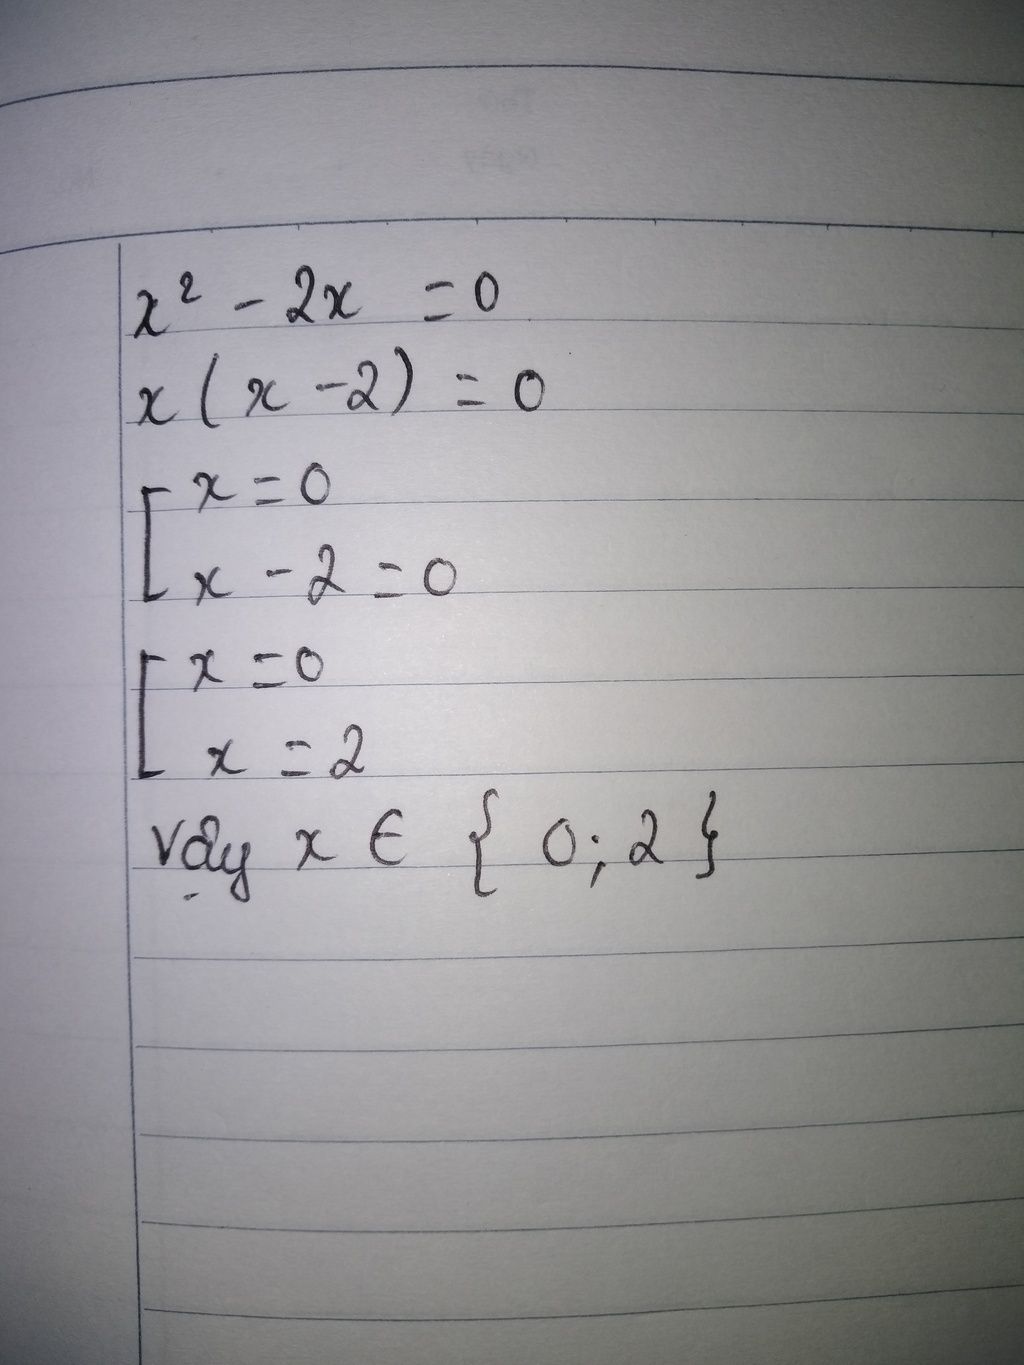 x² - 2x = 0
x ( x - 2 ) = 0
[ x = 0
x - 2 = 0
[ x = 0
x = 2
Vậy x ∈ { 0 ; 2 }